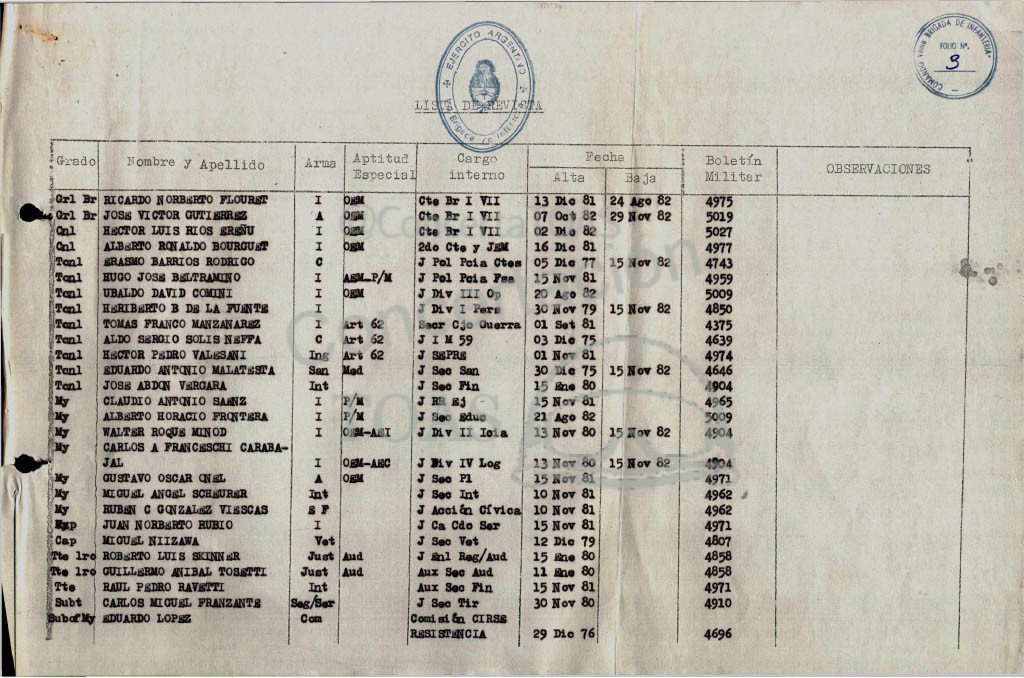 EJERCITO ARGENTINO
COMANDO VIIma BRIGADA DE INFANTERIA
FOLIO Nº.
3
LISTA DE REVISTA
Grado Nombre y Apellido Arma Aptitud Especial Cargo interno Fecha Alta Baja Boletín Militar OBSERVACIONES
Grl Br RICARDO NORBERTO FLOURET I OEM Cte Br I VII 13 Dic 81 24 Ago 82 4975
Grl Br JOSE VICTOR GUTIERREZ A OEM Cte Br I VII 07 Oct 82 29 Nov 82 5019
Cnl HECTOR LUIS RIOS EREÑU I OEM Cte Br I VII 02 Dic 82 5027
Cnl ALBERTO RONALDO BOURGUET I OEM 2do Cte y JEM 16 Dic 81 4977
Tcnl ERASMO BARRIOS RODRIGO C J Pol Pcia Ctes 05 Dic 77 15 Nov 82 4743
Tcnl HUGO JOSE BELTRAMINO I AEM-P/M J Pol Pcia Fsa 15 Nov 81 4959
Tcnl UBALDO DAVID COMINI I OEM J Div III Op 20 Ago 82 5009
Tcnl HERIBERTO B DE LA FUENTE I J Div I Pers 30 Nov 79 15 Nov 82 4850
Tcnl TOMAS FRANCO MANZANAREZ I Art 62 Secr Cjo Guerra 01 Set 81 4375
Tcnl ALDO SERGIO SOLIS NEFFA C Art 62 J I M 59 03 Dic 75 4639
Tcnl HECTOR PEDRO VALESANI Ing Art 62 J SEPRE 01 Nov 81 4974
Tcnl EDUARDO ANTONIO MALATESTA San Med J Sec San 30 Dic 75 15 Nov 82 4646
Tcnl JOSE ABDON VERGARA Int J Sec Fin 15 Ene 80 4904
My CLAUDIO ANTONIO SAENZ I P/M J RR Ej 15 Nov 81 4965
My ALBERTO HORACIO FRONTERA I P/M J Sec Educ 21 Ago 82 5009
My WALTER ROQUE MINOD I OEM-AEI J Div II Icia 13 Nov 80 15 Nov 82 4904
My CARLOS A FRANCESCHI CARABA-
JAL I OEM-AEC J Div IV Log 13 Nov 80 15 Nov 82 4904
My GUSTAVO OSCAR ONEL A OEM J Sec Pl 15 Nov 81 4971
My MIGUEL ANGEL SCHEURER Int J Sec Int 10 Nov 81 4962
My RUBEN C GONZALEZ VIESCAS E F J Acción Cívica 10 Nov 81 4962
JUAN NORBERTO RUBIO I J Ca Cdo Ser 15 Nov 81 4971
Cap MIGUEL NIIZAWA Vet J Sec Vet 12 Dic 79 4807
Tte 1ro ROBERTO LUIS SKINNER Just Aud J Enl Reg/Aud 15 Ene 80 4858
Tte 1ro GUILLERMO ANIBAL TOSETTI Just Aud Aux Sec Aud 11 Ene 80 4858
Tte RAUL PEDRO RAVETTI Int Aux Sec Fin 15 Nov 81 4971
Subt CARLOS MIGUEL FRANZANTE Seg/Ser J Sec Tir 30 Nov 80 4910
Subof My EDUARDO LOPEZ Com Comisión CIRSE
RESISTENCIA 29 Dic 76 4696